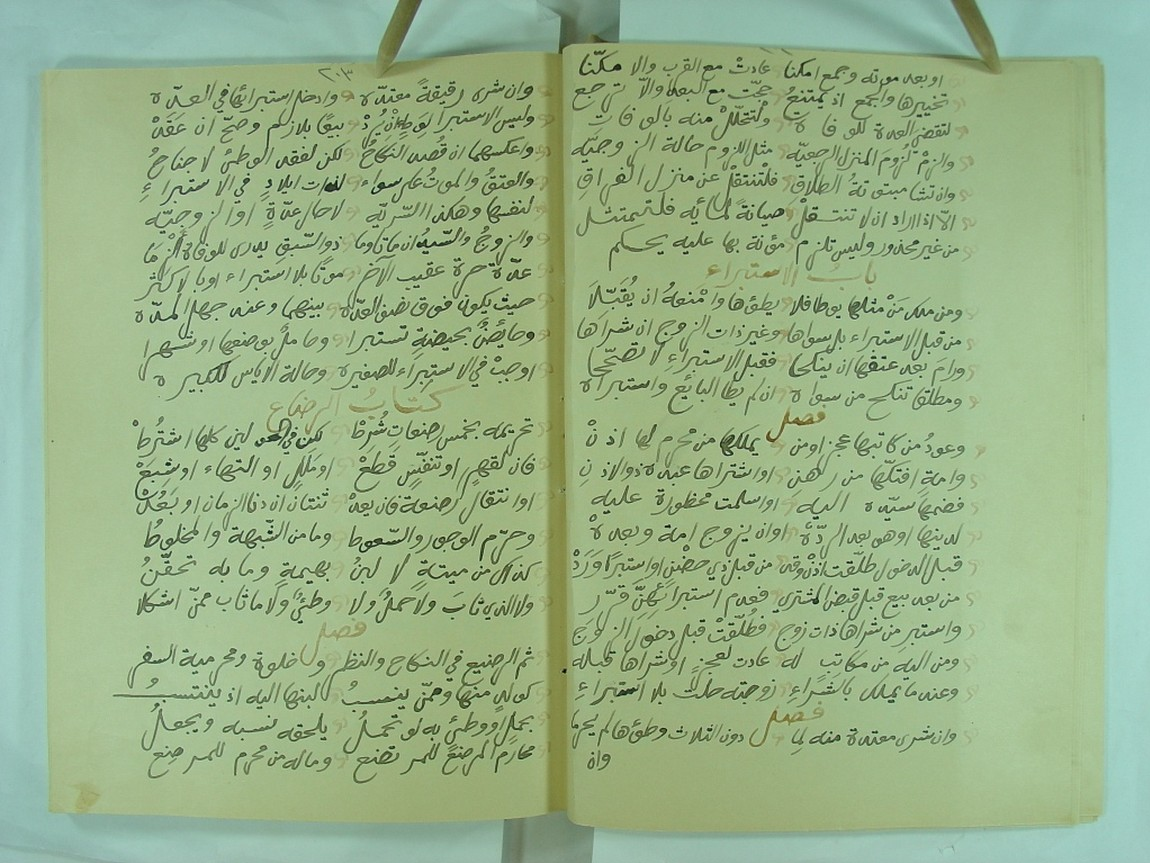 او بعد موته وجمع امكنا عادت مع القرب والا مكّنا
تخييرها واجمع اذ يمتنع حجّت مع البعد والّا ترجع
لتقض العدة للوفاة ولتتحلّل منه بالوفات
والزم لزوم المنزل الرجعيّه مثل اللزوم حالة الزوجيّه
وان تشا مبتوتة الطلاق فلتنتقل عن منزل الفراق
الّا اذا اراد ان لا تنتقل صيانةً لمائه فلتمتثل
من غير محذور وليس تلزم مؤنة بها عليه يحكم
باب الاستبراء
ومن ملك من مثلها يوطا فلا يطؤها وامنعه ان يقبّلا
من قبل الاستبراء بل سواها وغير ذات الزوج ان شراها
ورام بعد عتقها ان ينكحا فقبل الاستبراء لا تصحّحا
ومطلقا تنكح من سواه ان لم يطا البائع واستبراه
فصل
وعود من كاتبها عجز او من يملكها من محرم لها اذن
وامة افتكّها من رهن او اشتراها عبده ذو الاذن
فضمها سيّده اليه او اسلمت محظورة عليه
لدينها او هو بعد الردّه او ان يزوج امة وبعده
قبل الدخول طلّقت
من بعد بيع قبل قبض المشتري فعدم استبرائهنّ قرّر
واستبر من شراها ذات زوج فطُلّقت قبل دخول الزوج
ومن اليه من مكاتب له عادت لعجز او شراها قبله
وعند ما يملك بالشراء زوجته حلّت بلا استبراء
فصل
وان شرى معتدة منه لما دون الثلاث وطؤها لم يحرما
وان
٢٠٣
وان شره رقيقةً معتدّه وادخل استبرائها في العدّه
وليس الاستبرا بيعًا بلازم وصحّ ان عقد
واعكسهما ان قُصد النكاح لكن لفقد الوطئ لا جناح
والعتق والموت على سواء لذات ايلاد في الاستبراء
لنفسها وهكذا السّريّه لا حال عدّةٍ او الزوجيّه
والزوج والسّيد ان ماتا وما ذو السّبق يدرى للوفاة الزما
عدّة حرة عقيب الآخر موتًا بلا استبراء او بالاكثر
حيث يكون فوق نصف العدّه بينهما وعند جهل المدّه
وحايض بحيضةٍ تستبرا وحامل بوضعها او شهرا
اوجب في الاستبراء للصغيره وحالة الاياس للكبيره
كتاب الرضاع
تحريمه بخمس رضعات شُرط لكن في لبن كلها اشتُرط
فان لقهرٍ او تنفّسٍ قطع او مللٍ او التهاء او شبع
او انتقال رضعة فان يعد ثنتان ان دنا الزمان او بعُد
وحرّم الوجور والسّعوط وما من الشّبهة والمخلوط
كذاك من ميتةٍ لا لبن بهيمةٍ وما به تحقّن
ولا الذي ثاب ولا حمل ولا وطئٌ ولا ما ثاب ممّن اشكلا
فصل
ثم الرضيع في النكاح والنظر وخلوة ومحرمية السفر
كولد منها وممّن ينسب لبنها اليه اذ ينتسب
بحملٍ او وطئ به لو تحمل يلحقه نسبه ويجعل
محارم المرضع للمرتضع وما له من محرم للمرضع